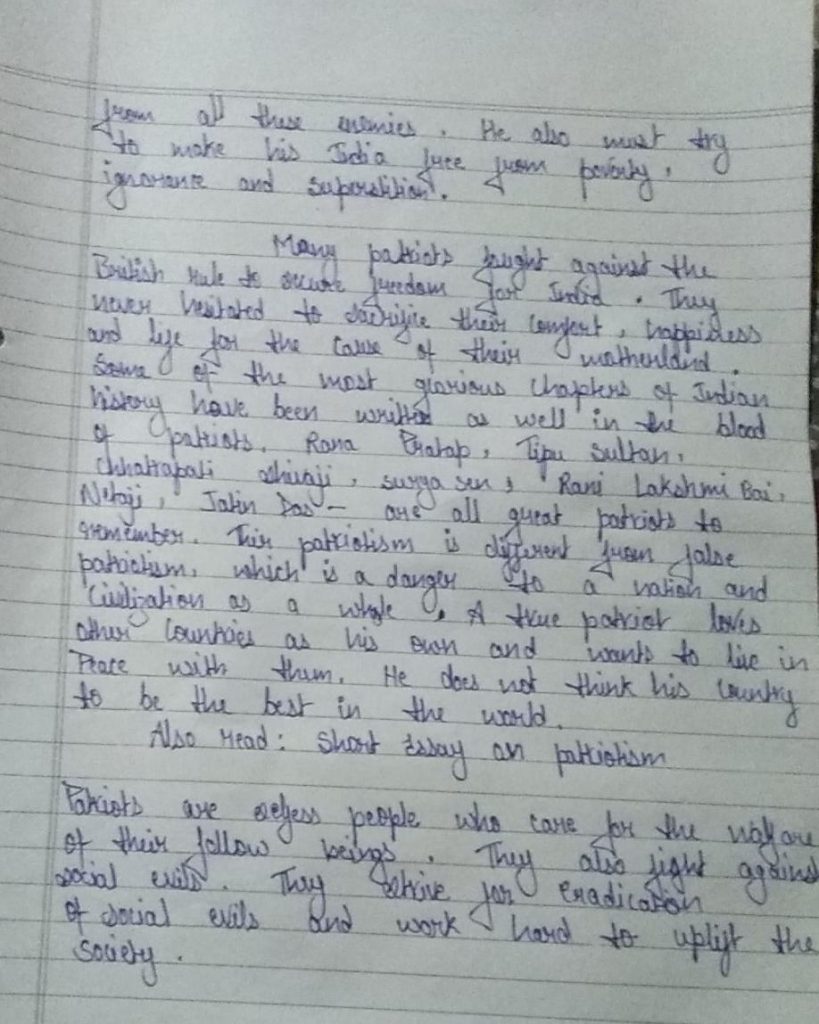 from all these enemies. He also must try
to make his India free from poverty,
ignorance and superstition.
Many patriots fought against the
British rule to secure freedom for India. They
never hesitated to sacrifice their comfort, happiness
and life for the cause of their motherland.
Some of the most glorious chapters of Indian
history have been written as well in the blood
of patriots. Rana Pratap, Tipu Sultan,
Chhatrapati Shivaji, Surya Sen, Rani Lakshmi Bai,
Netaji, Jatin Das - are all great patriots to
remember. This patriotism is different from false
patriotism, which is a danger to a nation and
Civilization as a whole. A true patriot loves
other Countries as his own and wants to live in
Peace with them. He does not think his Country
to be the best in the world.
Also read: Short Essay on patriotism
Patriots are selfless people who care for the welfare
of their fellow beings. They also fight against
social evils. They strive for eradication
of social evils and work hard to uplift the
Society.